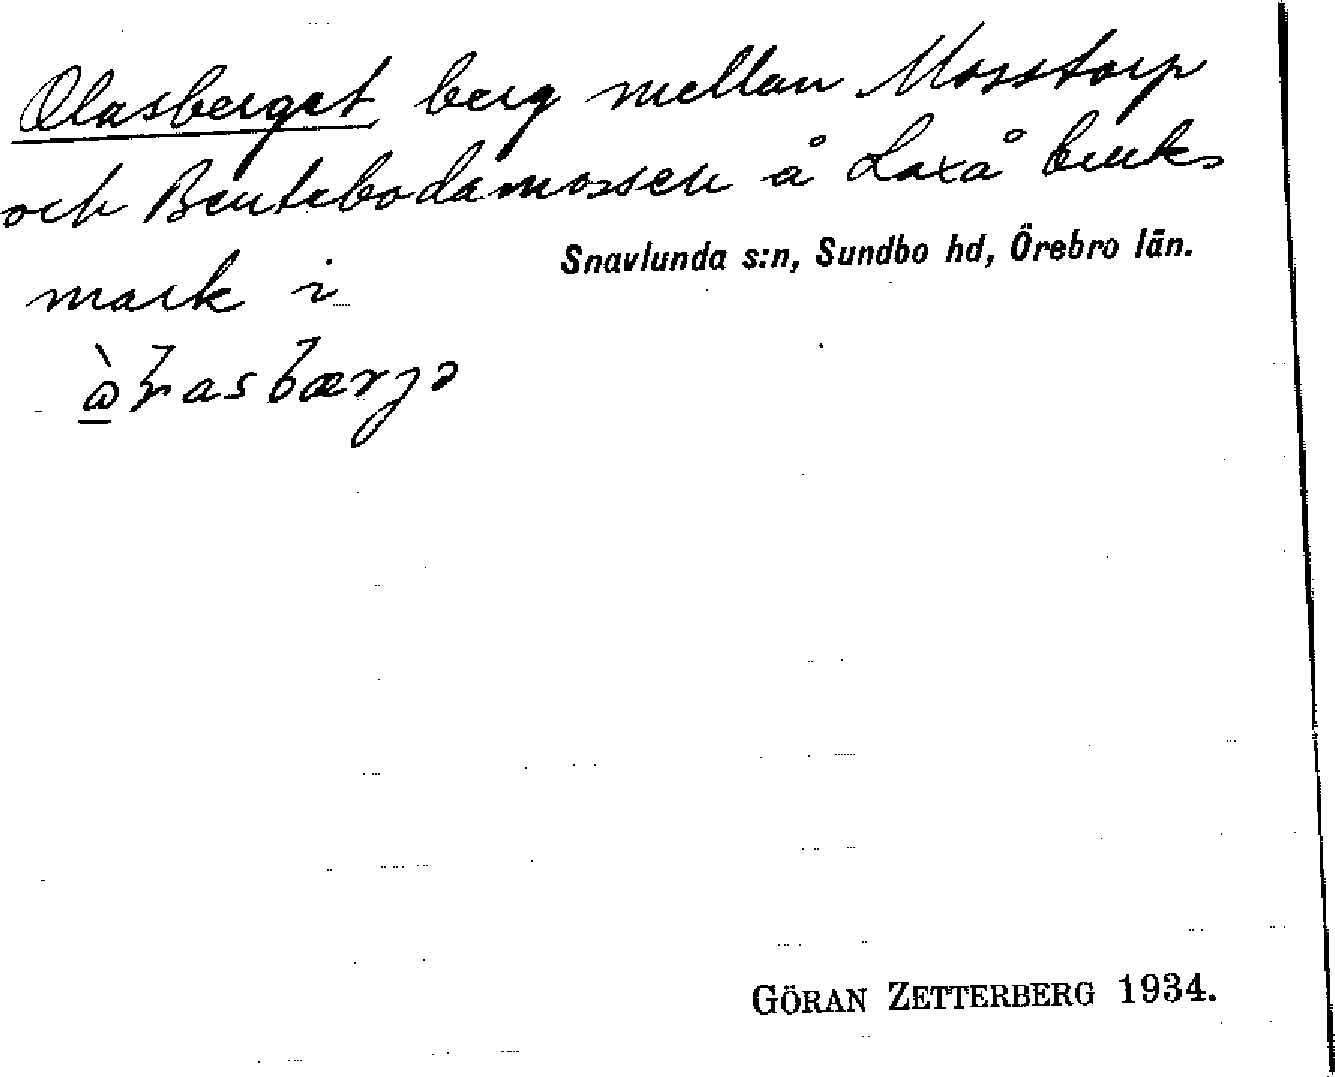 Olasberget berg mellan Mosstorp
och Bentebodamossen å Laxå bruks
mark i Snavlunda s:n, Sundbo hd, Örebro län.
GÖRAN ZETTERBERG 1934.